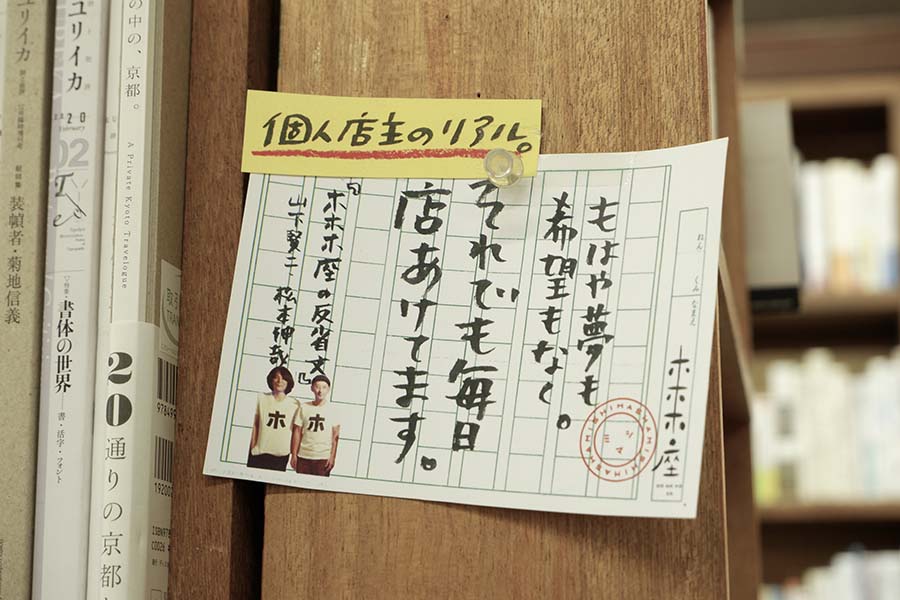 個人店主のリアル。
もはや夢も
希望もなく。
それでも毎日
店あけてます。
『ホホホ座の反省文』
山下賢二 松本伸哉
ホ
ホ
ねん
くみ
なまえ
ホホホ座
シマミ
SHIMASHIMA
ユリイカ
装幀者・菊地信義
ユリイカ
20
February
02
書体の世界
書・活字・フォント
の中の、京都。
A Private Kyoto Travelogue
20
通りの京都
取引
TRAN
978499
192002
ISBN978
C0026